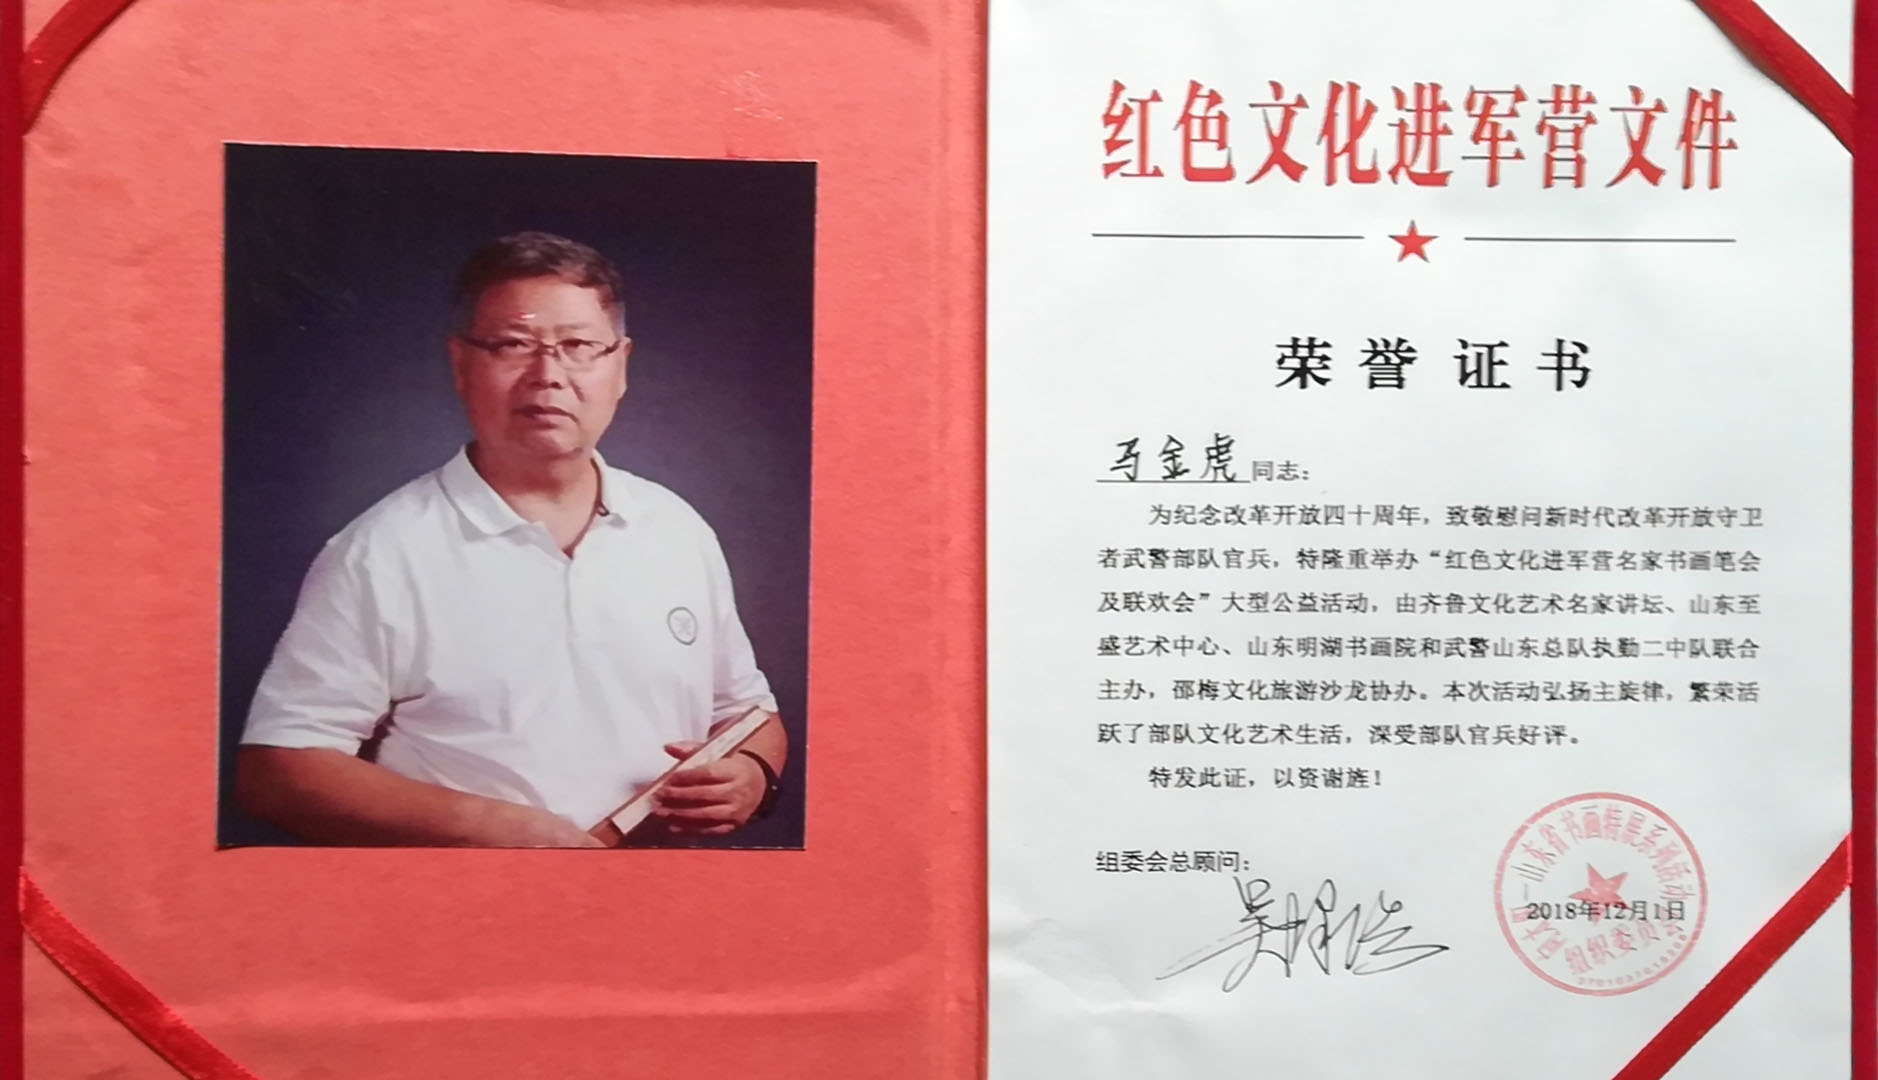 红色文化进军营文件
荣誉证书
马金虎同志：
为纪念改革开放四十周年，致敬慰问新时代改革开放守卫
者武警部队官兵，特隆重举办“红色文化进军营名家书画笔会
及联欢会”大型公益活动，由齐鲁文化艺术名家讲坛、山东至
盛艺术中心、山东明湖书画院和武警山东总队执勤二中队联合
主办，邵梅文化旅游沙龙协办。本次活动弘扬主旋律，繁荣活
跃了部队文化艺术生活，深受部队官兵好评。
特发此证，以资谢旌！
组委会总顾问：
2018年12月1日
山东省书画特展系列活动
组织委员会